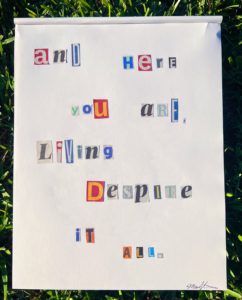 and HerE
you are,
LiVing
Despite
iT ALL.